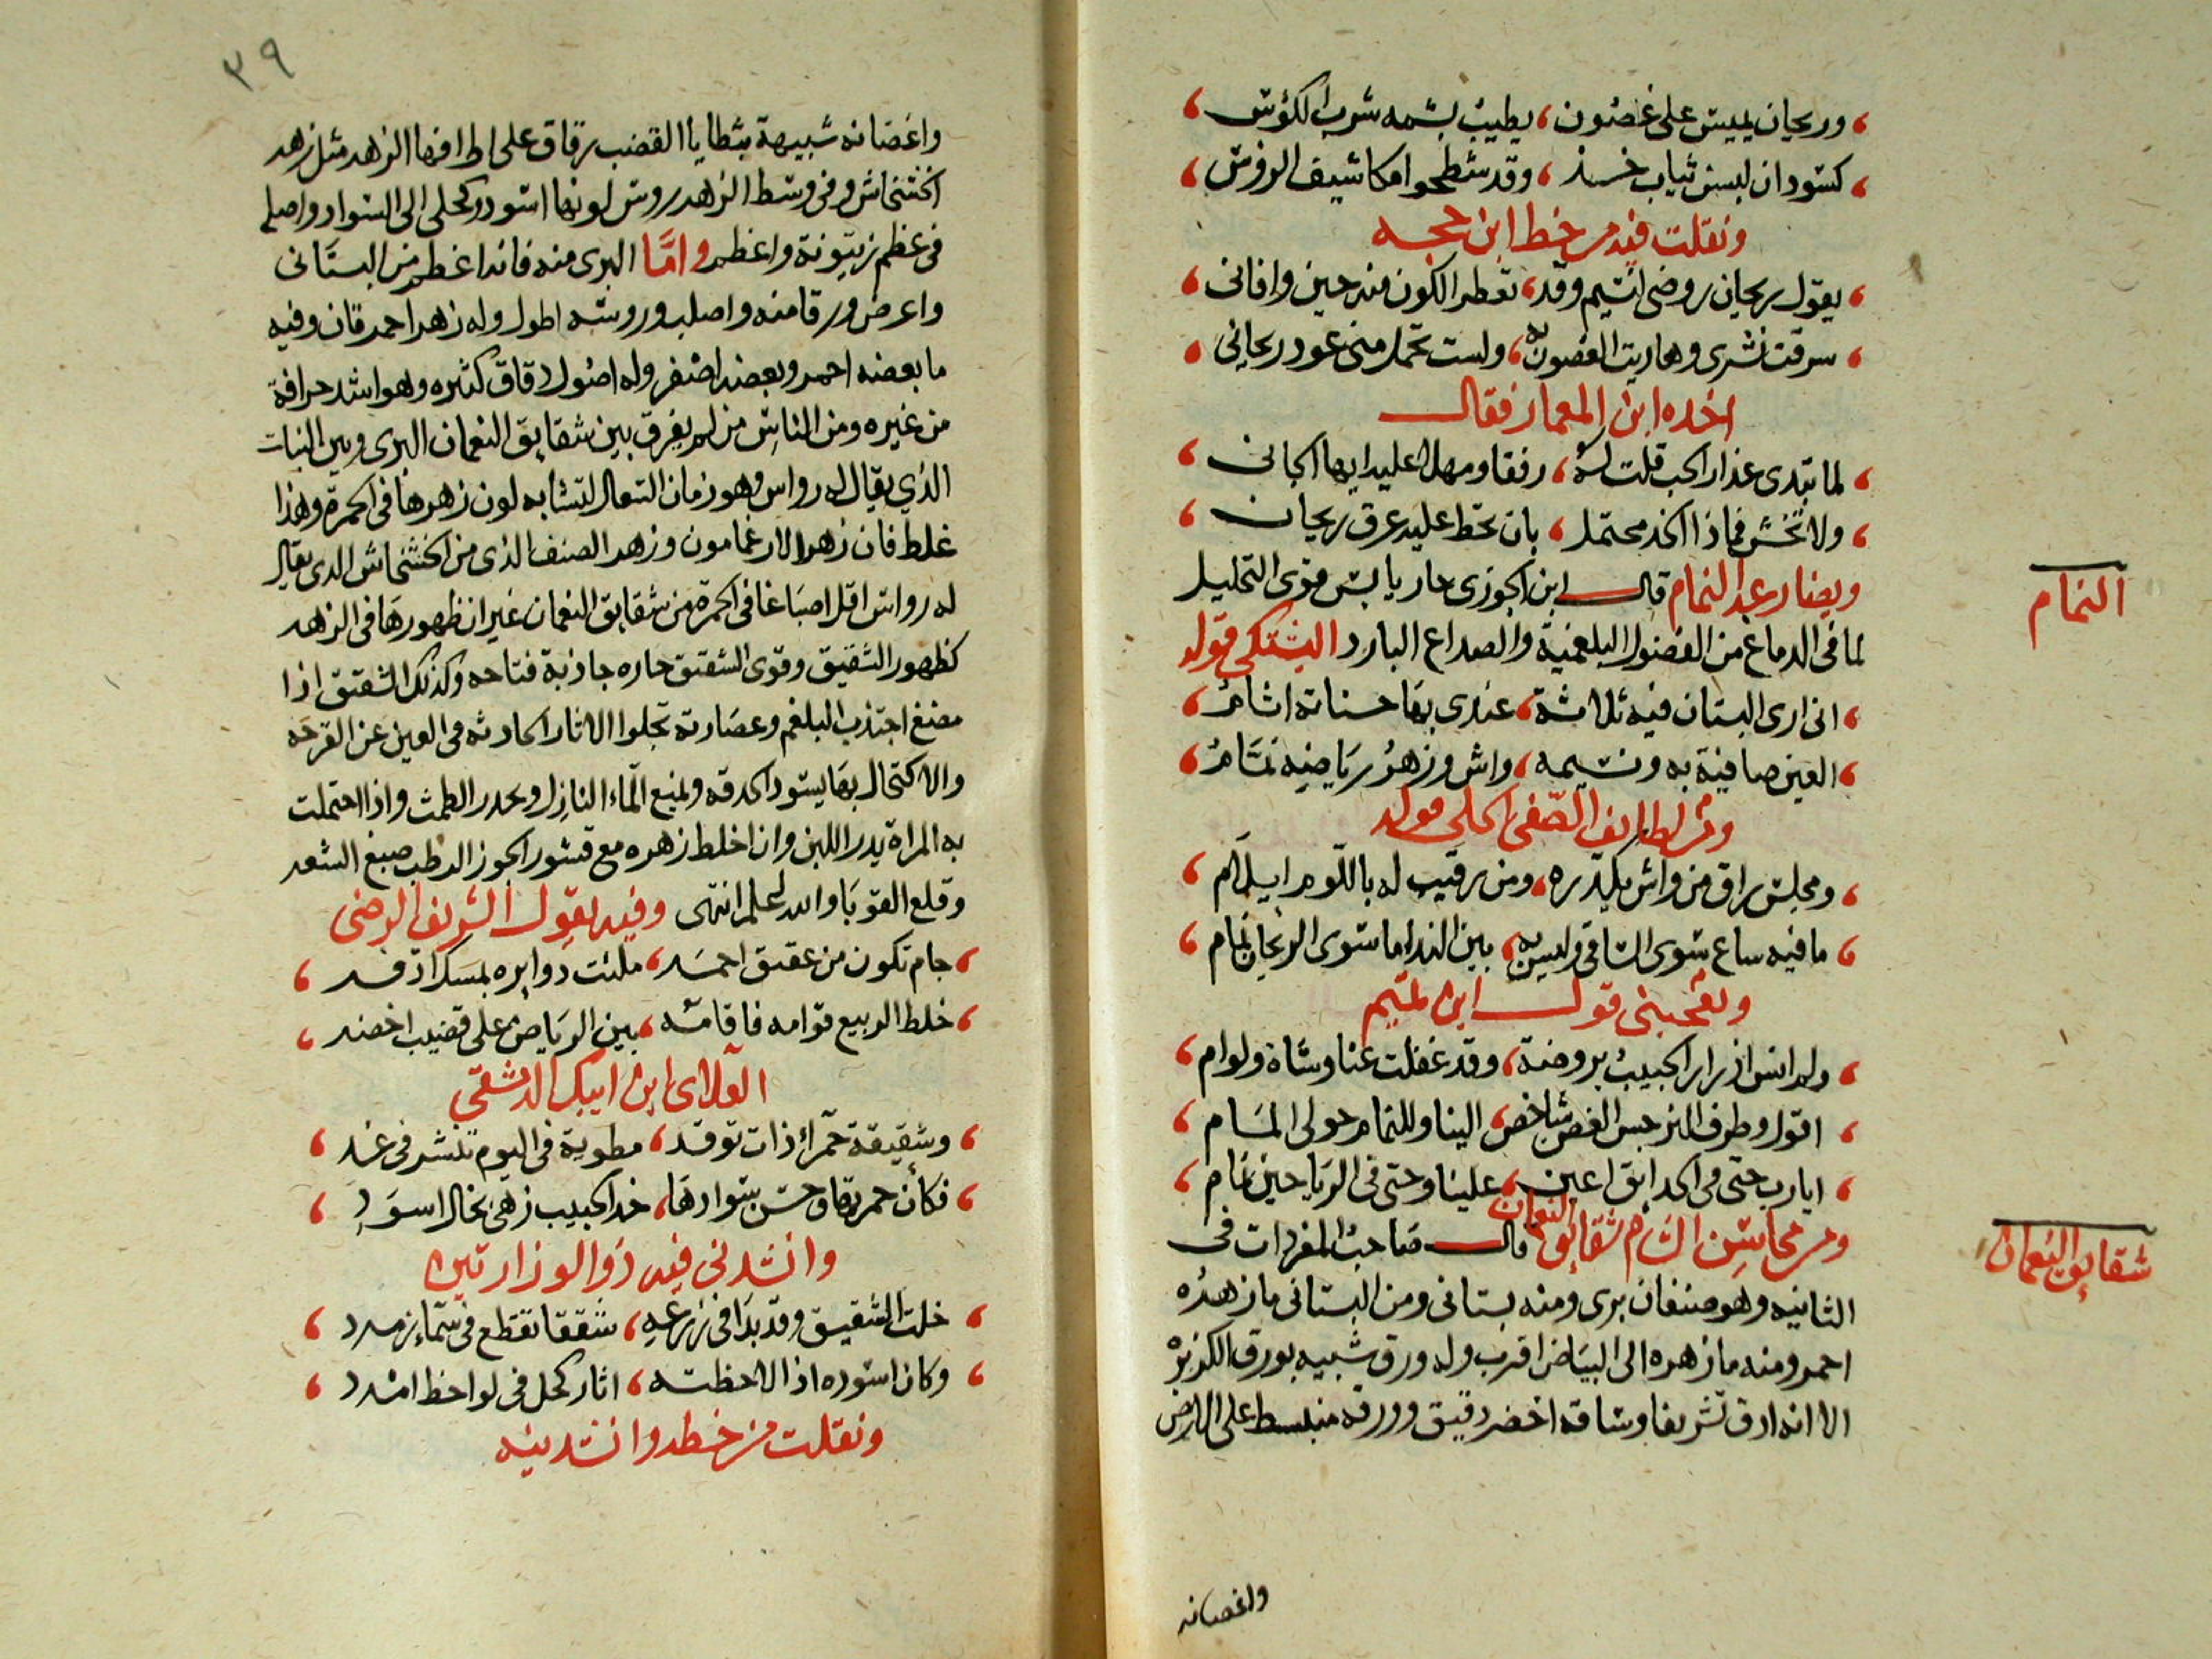 وريحان يميس على غصون ، يطيب بشمه شرب الكؤس ،
كسودان لبسن ثياب خز ، وقد شطحوا مكاشيف الروس ،
ونقلت فيه من خط ابن حجه
يقول ريحان روضى النسيم وقد ، تعطر الكون منه حين وافانى ،
سرقت نشرى وهاربت الغصون به ، ولست تحمل منى عود ريحانى ،
اخده ابن المعمار فقال
لما تبدى عذار الحب قلت له ، رفقا ومهلا عليه ايها الجانى ،
ولا تخش فماذا الخد محتمل ، بان تخط عليه عرق ريحان ،
النمام
ويضارعه النمام قال ابن الجوزى حار يابس قوى التحليل
لما فى الدماغ من الفضول البلغمية والصداع البارد البشتكى قوله
انى ارى البستان فيه ثلاثة ، عندى بها حسناته اثام ،
العين صافية به ونسيمه ، واش وزهر رياضه نمام ،
ومن لطائف الصفى الحلى قوله
ومجلس راق من واش يكدره ، ومن رقيب له باللوم ايلام ،
ما فيه ساع سوى الساقى وليس به ، بين الندا ما سوى الريحان نمام ،
ويعجبنى قول ابن تميم
ولم انس اذ زار الحبيب بروضة ، وقد غفلت عنا وشاة ولوام ،
اقول وطرف النرجس الغض شاخص ، الينا وللنمام حولى المام ،
ايا رب حتى فى الحدائق اعين ، علينا وحتى فى الرياحين نمام ،
شقايق النعمان
ومن محاسن الشام شقايق النعمان قال صاحب المفردات فى
الثانيه وهو صنفان برى ومنه بستانى ومن البستانى ما زهره
احمر ومنه ما زهره الى البياض اقرب وله ورق شبيه بورق الكزبره
الا انه ادق تشريفا وساقه اخضر دقيق وورقه منبسط على الارض
واغصانه
٣٩
واغصانه شبيهة بشظايا القضب رقاق على اطرافها الزهر مثل زهر
الخشخاش وفى وسط الزهر روس لونها اسود وكحلى الى السواد واصله
فى عظم زيتونة واعظم واما البرى منه فانه اعظم من البستانى
واعرض ورقا منه واصلب وروسه اطول وله زهر احمر قان وفيه
ما بعضه احمر وبعضه اصفر وله اصول دقاق كثيره وهو اشد حرافة
من غيره ومن الناس من لم يفرق بين شقايق النعمان البرى وبين النبات
الذي يقال له رواس وهو زمان السعال لتشابه لون زهرها فى الحمرة وهذا
غلط فان زهر الارغامون وزهر الصنف الذى من الخشخاش الدى يقال
له رواس اقل اصباغا فى الحمرة من شقايق النعمان غير ان ظهورها فى الزهر
كظهور الشقيق وقوى الشقيق حاره جاذبة فتاحه وكذلك الشقيق اذا
مضغ اجتذب البلغم وعصارته تجلوا الاثار الحادثه فى العين عن القرحه
والاكتحال بها يسود الحدقه ويمنع الماء النازل ويحدر الطمث واذا احتملت
به المراة يدر اللبن وان اخلط زهره مع قشور الجوز الرطب صبغ الشعر
وقلع القوبا والله اعلم انتهى وفيه يقول الشريف الرضى
جام تكون من عقيق احمر ، ملئت دوايره بمسك ادفر ،
خلط الربيع قوامه فاقامه ، بين الرياض على قضيب اخضر ،
العلاى ابن ايبك الدمشقى
وشقيقة حمرا ذات توقد ، مطوية فى اليوم تنشر فى غد ،
فكأن حمرتها وحسن سوادها ، خد الحبيب زهى بخال اسود ،
وانشدنى فيه ذو الوزارتين
خلت الشقيق وقد بدا فى زرعه ، شققا تقطع فى سماء زمرد ،
وكان اسوده اذا لاحظته ، اثار كحل فى لواحظ امرد ،
ونقلت من خطه وانشدنيه